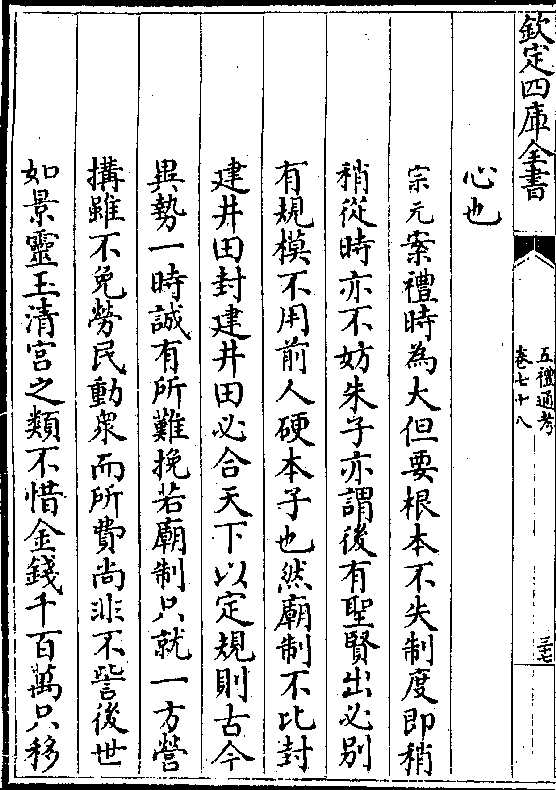 欽定四庫全書
五禮通考
卷七十八
三七
心也
宗元案禮時為大但要根本不失制度即稍
稍從時亦不妨朱子亦謂後有聖賢出必別
有規模不用前人硬本子也然廟制不比封
建井田封建井田必合天下以定規則古今
異勢一時誠有所難挽若廟制只就一方營
搆雖不免勞民動衆而所費尚非不訾後世
如景靈玉清宫之類不惜金錢千百萬只移